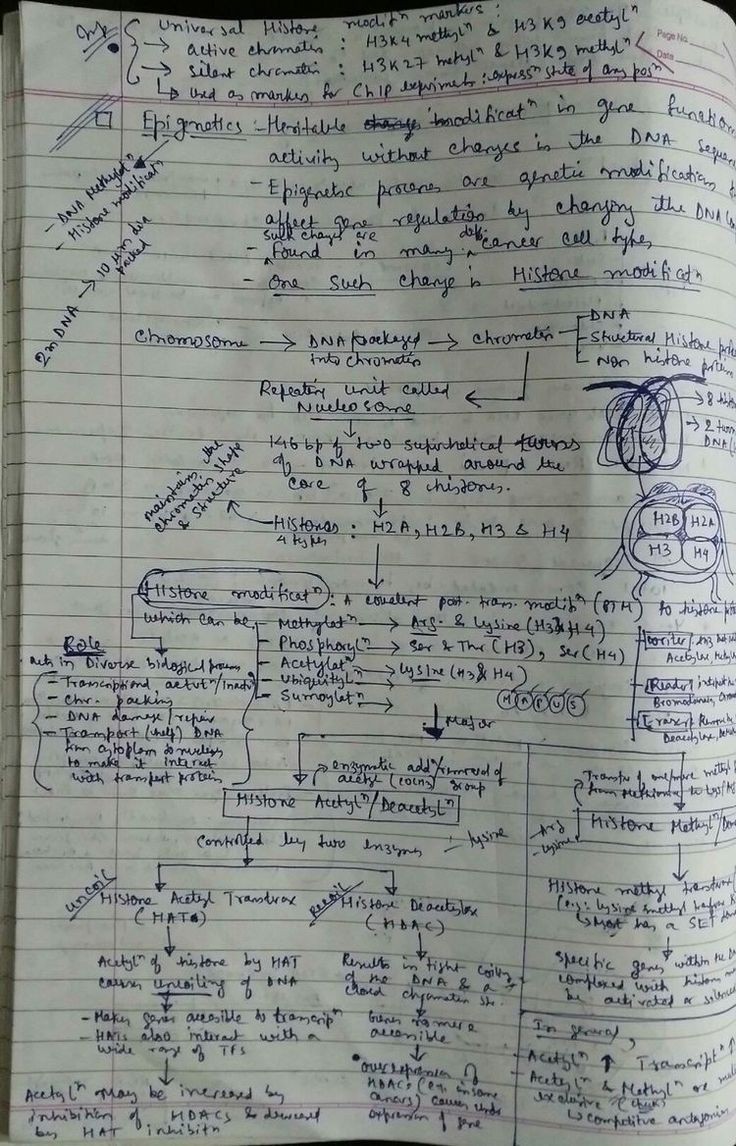 Imp.
Universal Histone modifⁿ markers:
→ active chromatin : H3K4 methylⁿ & H3K9 acetylⁿ
→ Silent chromatin : H3K27 methylⁿ & H3K9 methylⁿ
↳ Used as markers for ChIP experiments : expressⁿ state of any posⁿ
Page No.
Date
Epigenetics :- Heritable modificatⁿ in gene function
activity without changes in the DNA sequen
- Epigenetic processes are genetic modifications
affect gene regulation by changing the DNA
such changes are
- Found in many diff. cancer cell types
- One such change is Histone modificatⁿ
- DNA Methylatⁿ
- Histone modificatⁿ
2m DNA → 10 μm dia
packed
Chromosome → DNA packaged → chromatin
into chromatin
- DNA
- Structural Histone prote
- Non histone protein
Repeating unit called
Nucleosome
→ 8 histo
→ 2 turn
DNA
146 bp of two superhelical turns
of DNA wrapped around the
core of 8 histones.
maintains the
chromatin shape
& structure
Histones : H2A, H2B, H3 & H4
4 types
H2B H2A
H3 H4
Histone modificatⁿ : A covalent post. trans. modifⁿ (PTM) to histone
which can be,
- Methylatⁿ → Arg. & Lysine (H3 & H4)
- Phosphorylⁿ → Ser & Thr (H3), Ser (H4)
- Acetylatⁿ → Lysine (H3 & H4)
- Ubiquitylⁿ →
- Sumoylatⁿ →
M A P U S
Role
Acts in Diverse biological process
- Transcriptional actvtⁿ/inactvⁿ
- Chr. packing
- DNA damage / repair
- Transport (help) DNA
from cytoplasm to nucleus
to make it interact
with transport protein
Major
enzymatic addⁿ/removal of
acetyl (COCH3) group
Histone Acetylⁿ/Deacetylⁿ
Controlled by two enzymes
- lysine
uncoil
Histone Acetyl Transferase
(HATs)
Acetylⁿ of histone by HAT
causes uncoiling of DNA
- Makes genes accesible to transcripⁿ
- HATs also interact with a
wide range of TFs
Acetylⁿ may be increased by
inhibition of HDACs & decreased
by HAT inhibitn
recoil
Histone Deacetylase
(HDAC)
Results in tight coiling
of the DNA & a
closed chromatin str.
Genes no more
accessible
• Overexpression of
HDACs (e.g. in some
cancers) causes under
expression of gene
Writer
Acetylase, Methyl
Reader
Bromodomain,
Eraser
Deacetylase,
Transfer of one/more methyl
from Methionine to Lys/
- Arg
- Lysine
Histone Methylⁿ/
Histone methyl transfera
(e.g: lysine methyl
↳ Most has a SET
Specific genes within the
complexed with histone
be activated or silence
In general,
- Acetylⁿ ↑ Transcriptⁿ ↑
- Acetylⁿ & Methylⁿ are
exclusive
↳ competitive antagonism